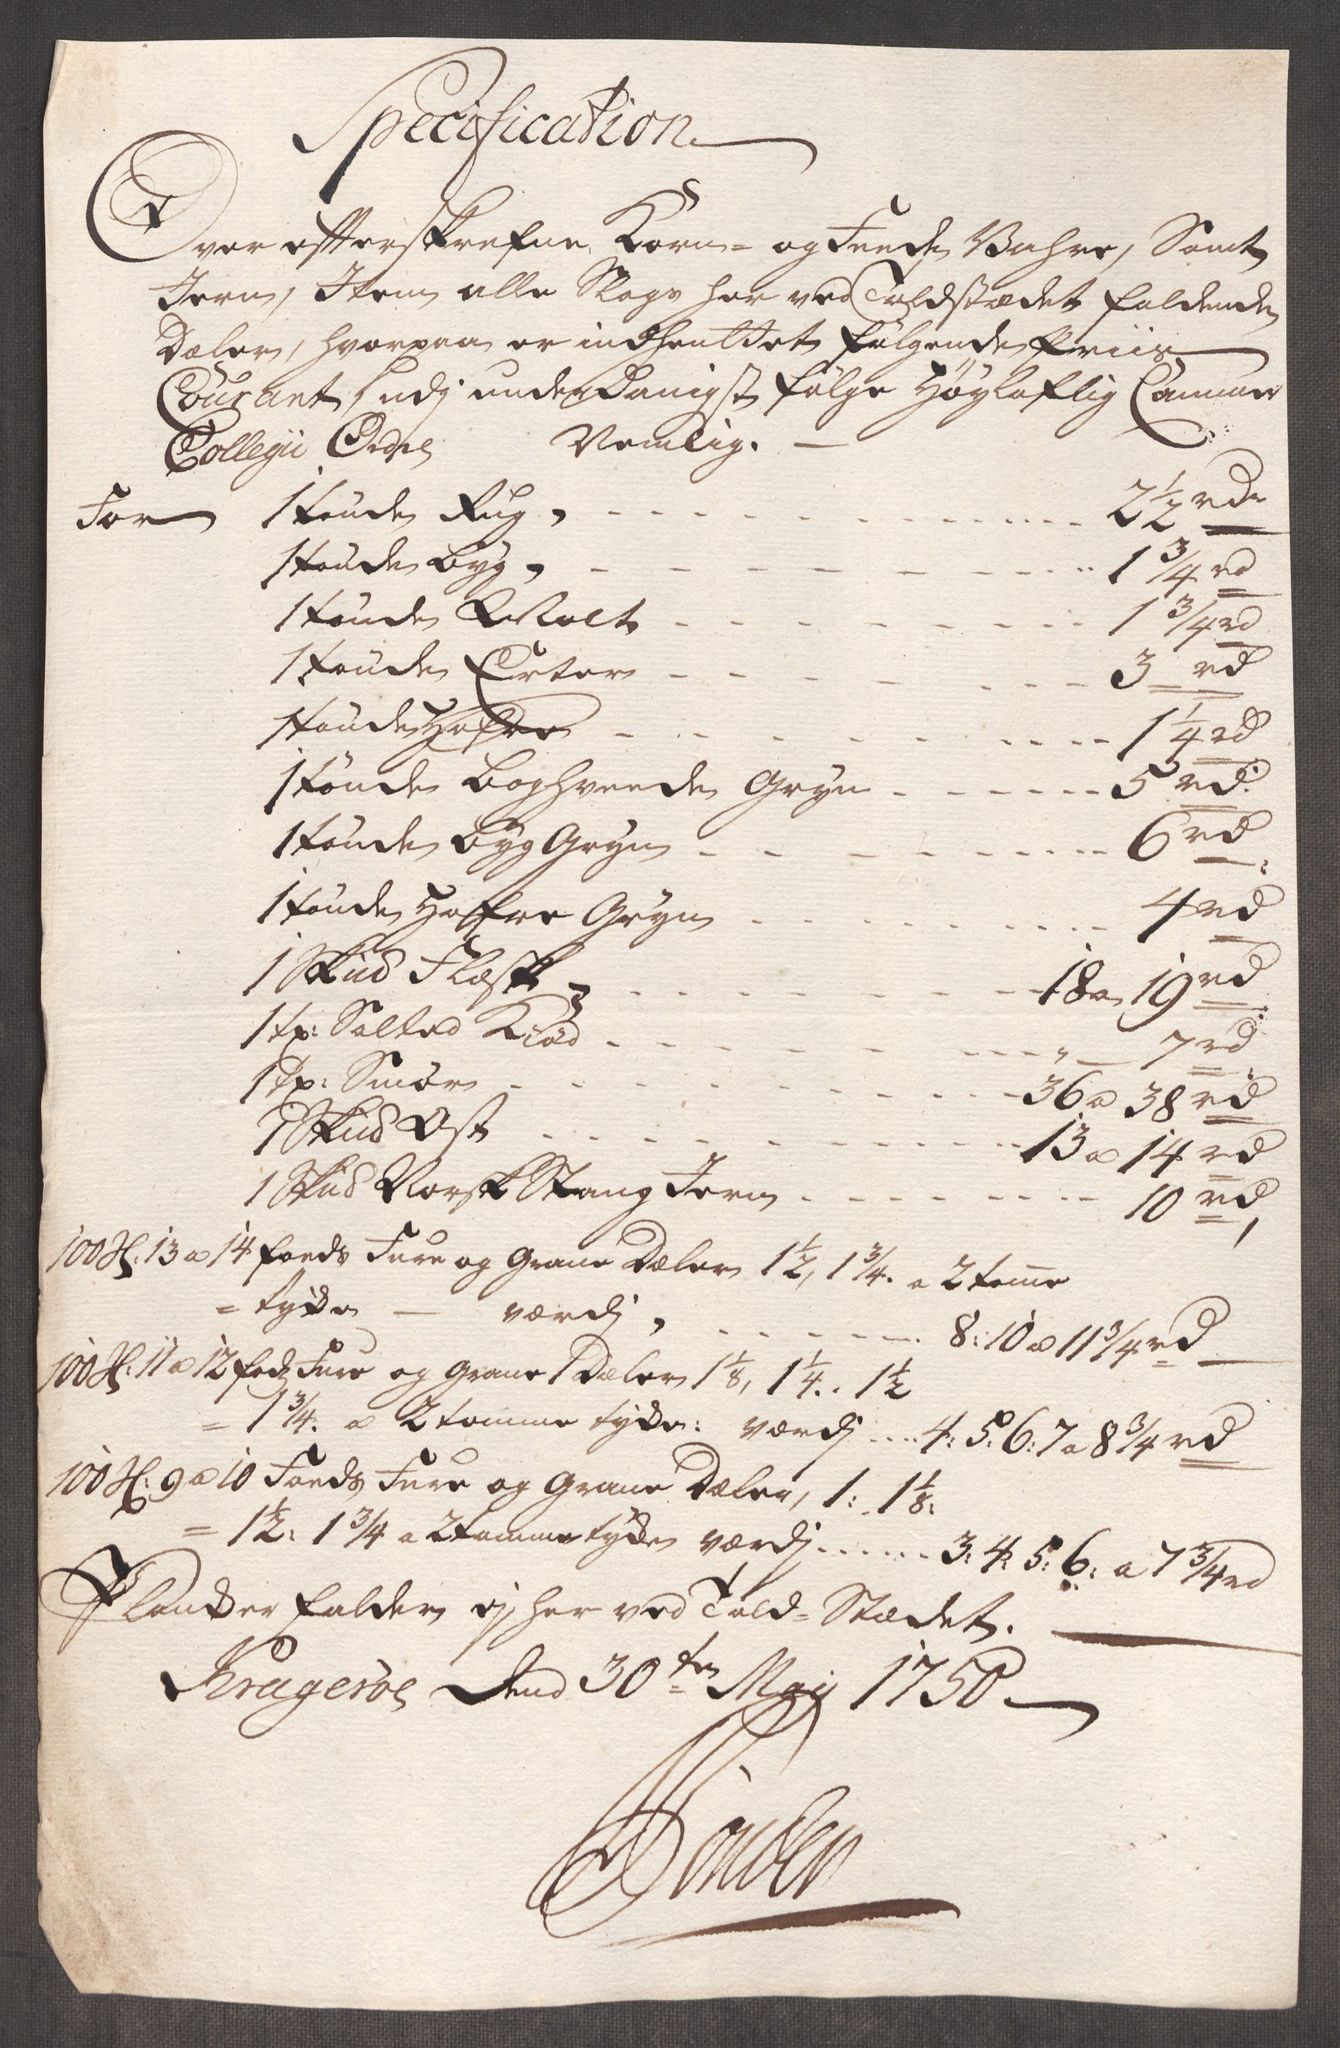 Specification
Over efterskrefne Korn- og Feede Vahre, Samt
Jern, Item alle Slags her ved Toldstædet faldende
Dæler, hvorpaa er indhentet følgende Priis
Courant, udj underdanigst følge Høyloflig Cammer
Collegii Ordre Nemlig.
For 1 tønde Rug, 2½ rdr
1 tønde Byg, 1 3/4 rd
1 tønde Malt 1 3/4 rd
1 tønde Erter 3 rd
1 tønde Hafre 1 1/4 rd
1 tønde Boghveede Gryn 5 rd:
1 tønde Byg Gryn 6 rd
1 tønde Haffre Gryn 4 rd
1 Skud Flæsk, 18 a 19 rd
1 tr: Salted Kiød 7 rd
1 tr: Smør 36 a 38 rd
1 Skud Ost 13 a 14 rd
1 Skud Norsk Stang Jern 10 rd
100 St: 13 a 14 foeds Fure og Grane Dæler 1½, 1 3/4. a 2 tomme
= tyke — værdj, 8: 10 a 11 3/4 rd
100 St: 11 a 12 fods Fure og Grane Dæler 1 1/8, 1 1/4. 1½
= 1 3/4. a 2 tomme tyke: værdj 4: 5: 6: 7 a 8 3/4 rd
100 St: 9 a 10 Foeds Fure og Grane Dæler, 1: 1 1/8:
= 1½: 1 3/4 a 2 tomme tyke værdj 3: 4: 5: 6: a 7 3/4 rd
Planker falder ej her ved Told-Stædet.
Krageröe Dend 30ten Maij 1750